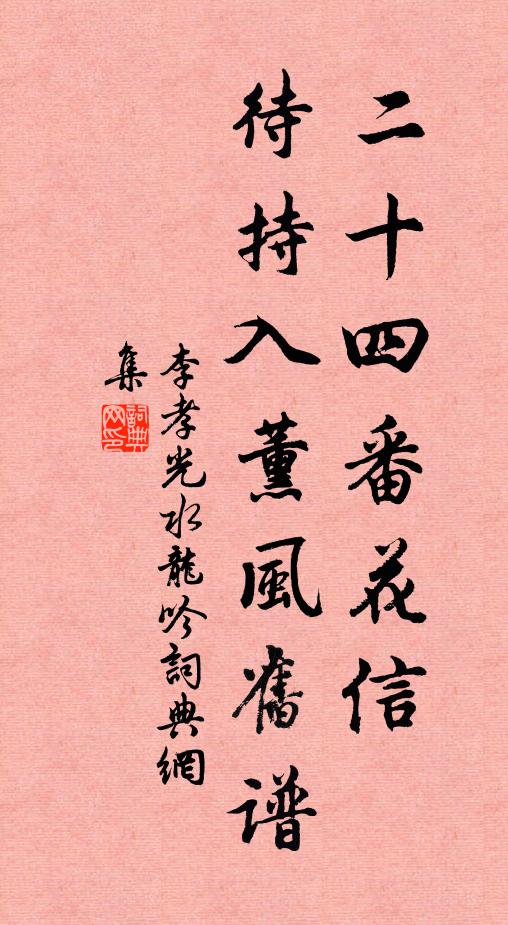 二十四番花信
待持入薰風舊谱
李孝光水龍吟詞典網
集
詞典網印